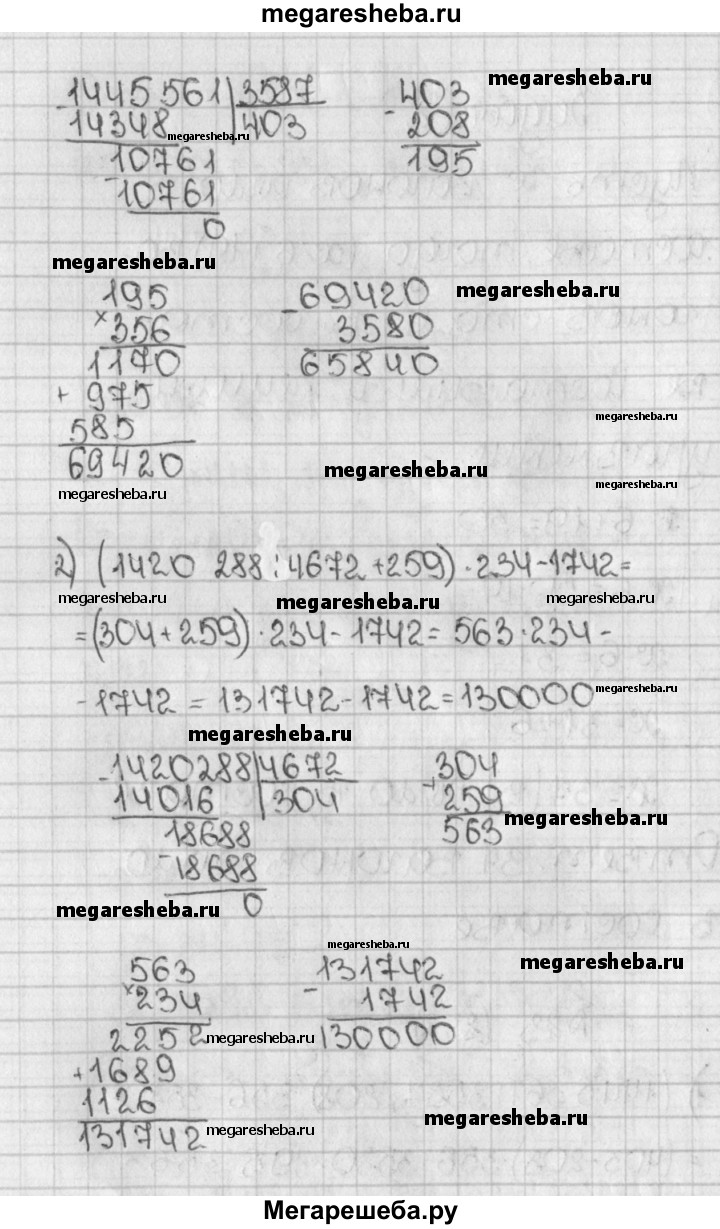 megaresheba.ru
1445561 | 3587      403      megaresheba.ru
- 14348 megaresheba.ru 403      - 208
10761      195
- 10761
0
megaresheba.ru
195      69420      megaresheba.ru
× 356      - 3580
1170      65840
+ 975      megaresheba.ru
585
69420      megaresheba.ru      megaresheba.ru
megaresheba.ru
2) (1420 288 : 4672 + 259) · 234 - 1742 =
megaresheba.ru      megaresheba.ru      megaresheba.ru
= (304 + 259) · 234 - 1742 = 563 · 234 -
- 1742 = 131742 - 1742 = 130000 megaresheba.ru
megaresheba.ru
- 1420288 | 4672      304
14016      304      + 259      megaresheba.ru
18688      563
- 18688
megaresheba.ru      0
megaresheba.ru
563      131742      megaresheba.ru
× 234      - 1742
2252 megaresheba.ru      130000
+ 1689
1126      megaresheba.ru
131742 megaresheba.ru
Мегарешеба.ру